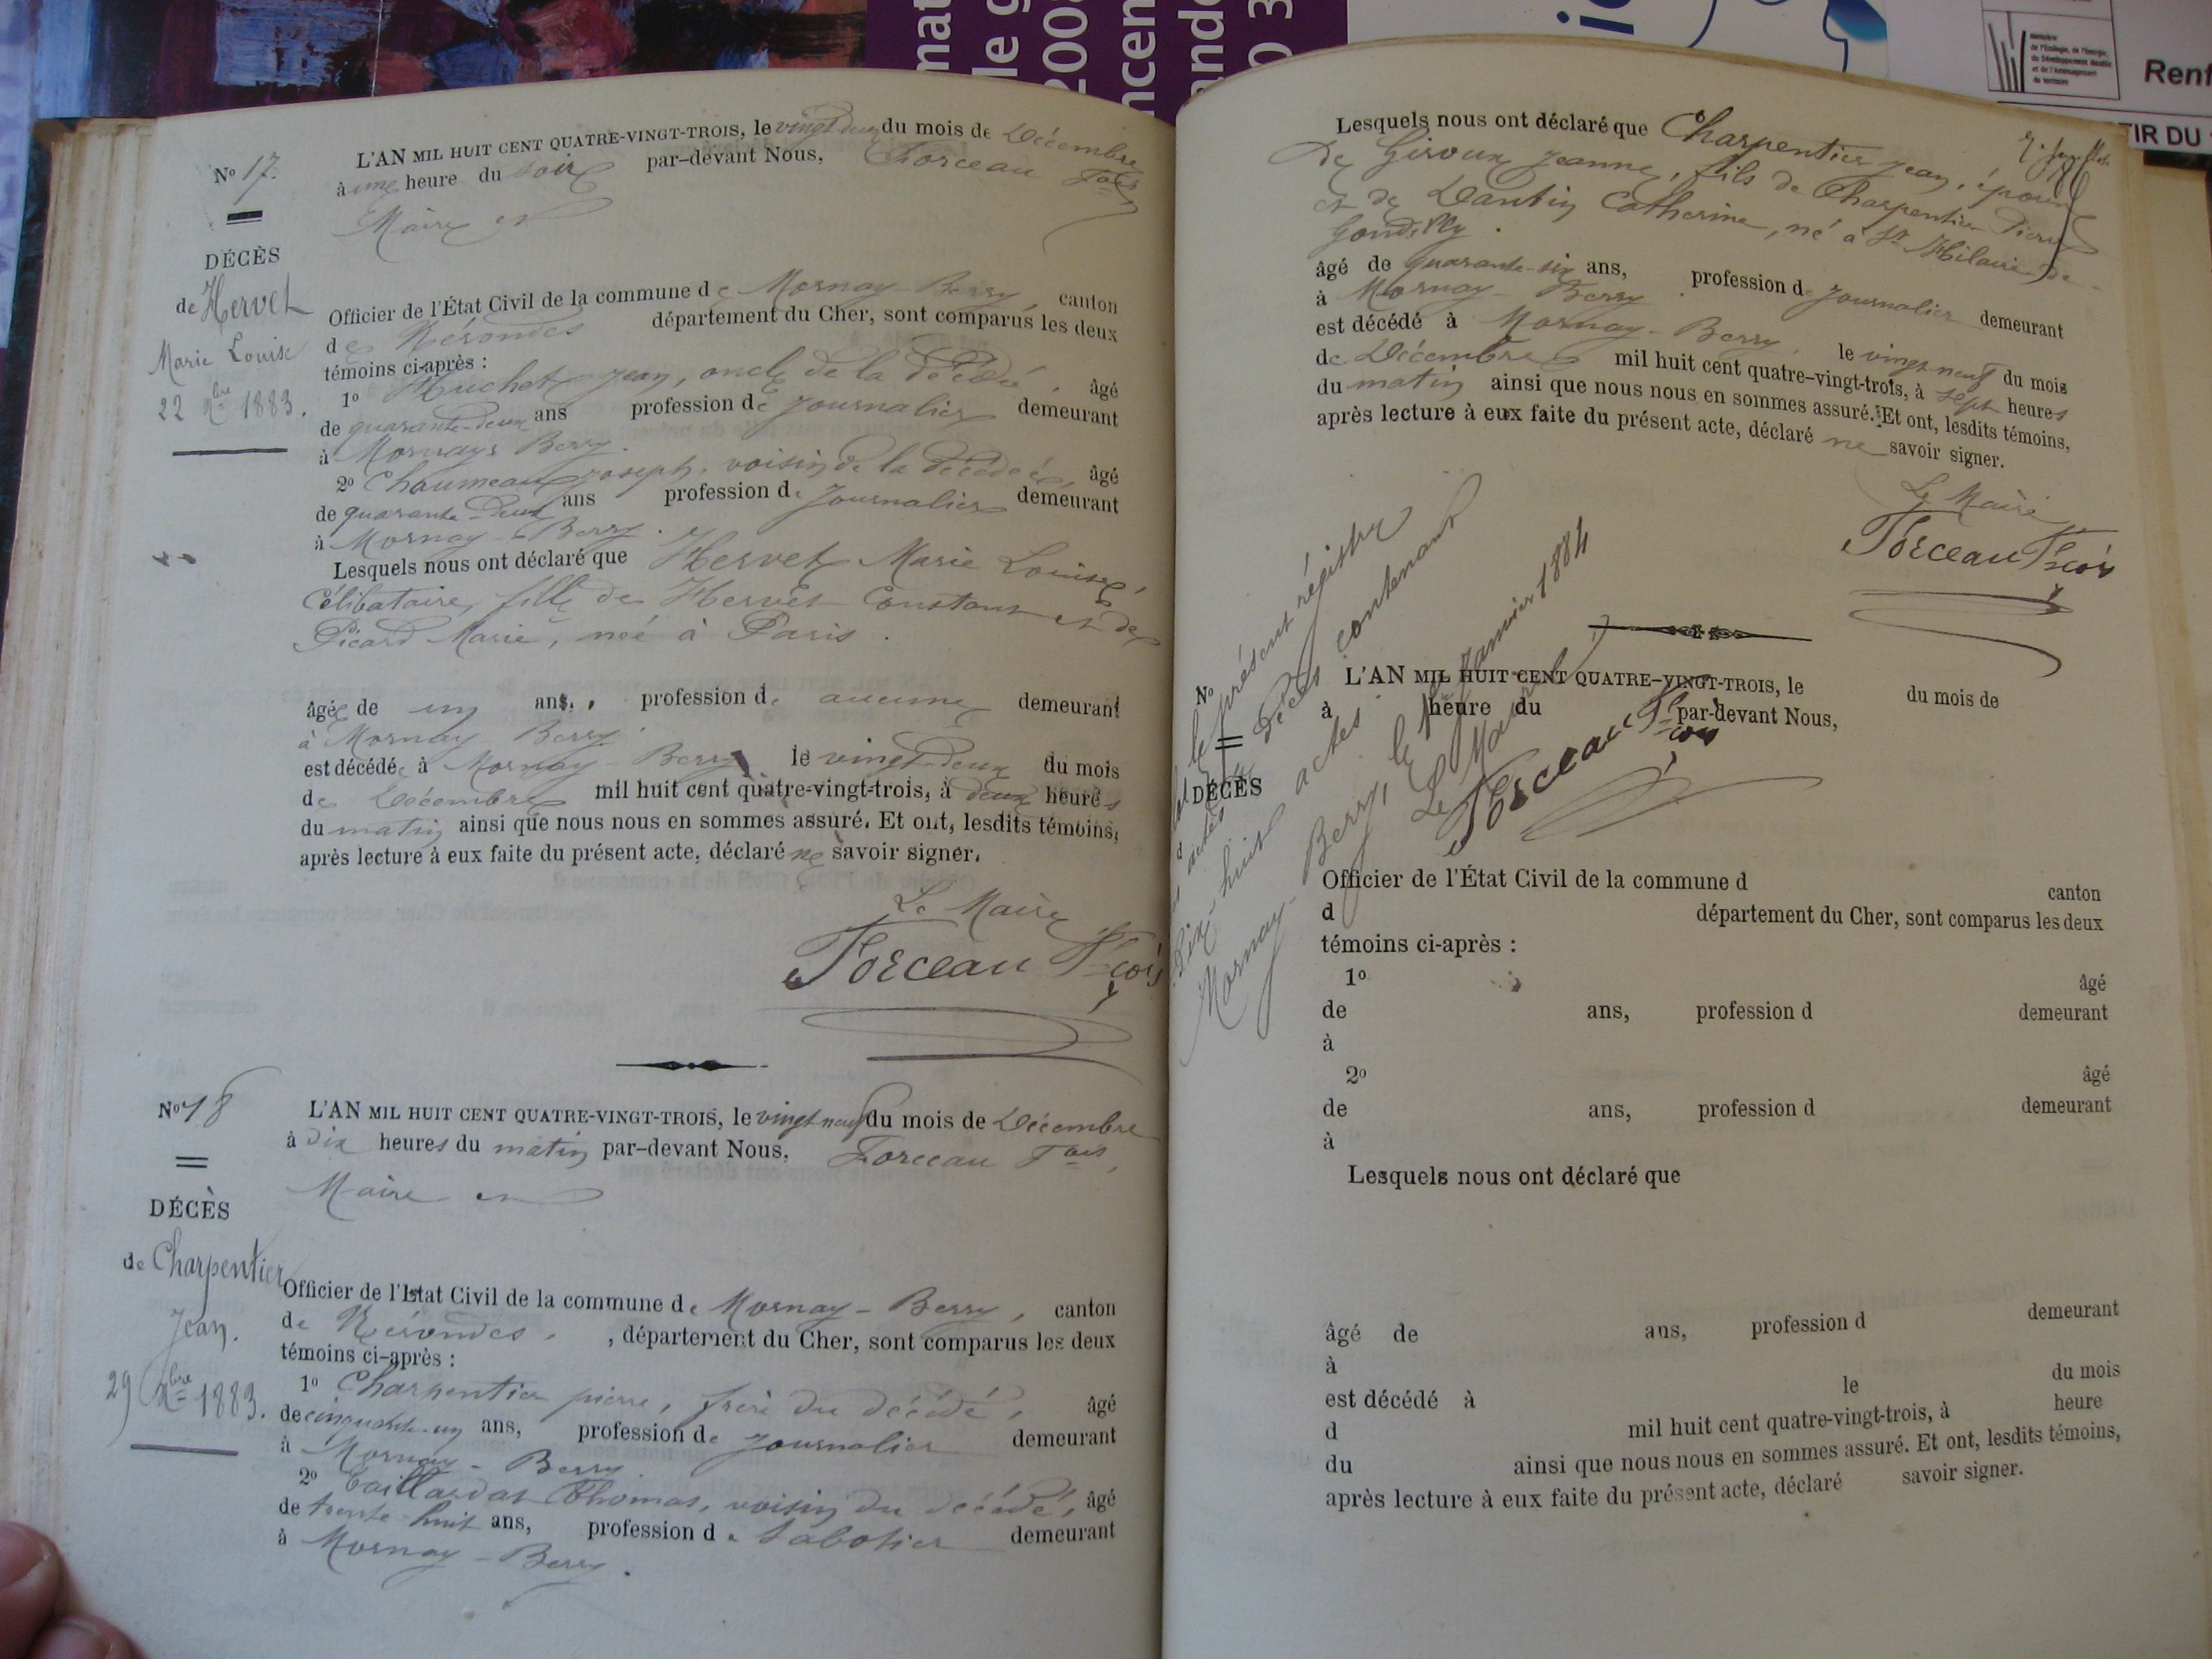 No 17.
DÉCÈS
de Hervet
Marie Louise
22 Xbre 1883.
L'AN MIL HUIT CENT QUATRE-VINGT-TROIS, le vingt deux du mois de Décembre
à une heure du soir par-devant Nous, Forceau Fois
Maire et
Officier de l'État Civil de la commune de Mornay-Berry, canton
de Nérondes département du Cher, sont comparus les deux
témoins ci-après :
1o Huchet Jean, oncle de la décédée, âgé
de quarante-deux ans profession de journalier demeurant
à Mornay-Berry.
2o Chaumeau Joseph, voisin de la décédée, âgé
de quarante-deux ans profession de journalier demeurant
à Mornay-Berry.
Lesquels nous ont déclaré que Hervet Marie Louise,
Célibataire, fille de Hervet Constant et de
Picard Marie, née à Paris.
âgée de un ans, profession de aucune demeurant
à Mornay Berry.
est décédée à Mornay-Berry le vingt-deux du mois
de Décembre mil huit cent quatre-vingt-trois, à deux heures
du matin ainsi que nous nous en sommes assuré. Et ont, lesdits témoins,
après lecture à eux faite du présent acte, déclaré ne savoir signer.
Le Maire
Forceau Fcois
No 18
DÉCÈS
de Charpentier
Jean.
29 Xbre 1883.
L'AN MIL HUIT CENT QUATRE-VINGT-TROIS, le vingt neuf du mois de Décembre
à dix heures du matin par-devant Nous, Forceau Fois,
Maire et
Officier de l'État Civil de la commune de Mornay-Berry, canton
de Nérondes, département du Cher, sont comparus les deux
témoins ci-après :
1o Charpentier pierre, frère du décédé, âgé
de cinquante-un ans, profession de journalier demeurant
à Mornay-Berry
2o Taillardat Thomas, voisin du décédé, âgé
de trente-huit ans, profession de Sabotier demeurant
à Mornay-Berry.
Lesquels nous ont déclaré que Charpentier Jean, époux
de Giroux Jeanne, fils de Charpentier Pierre
et de Dantin Catherine, né à St Hilaire-de-
Gondilly.
âgé de quarante-six ans, profession de journalier demeurant
à Mornay-Berry.
est décédé à Mornay-Berry, le vingt-neuf du mois
de Décembre mil huit cent quatre-vingt-trois, à sept heures
du matin ainsi que nous nous en sommes assuré. Et ont, lesdits témoins,
après lecture à eux faite du présent acte, déclaré ne savoir signer.
Le Maire
Forceau Fcois
le présent registre
décès contenant
dix-huit actes
Mornay-Berry, le 1er Janvier 1884
Le Maire
Forceau Fcois
No
DÉCÈS
d
L'AN MIL HUIT CENT QUATRE-VINGT-TROIS, le du mois de
à heure du par-devant Nous,
Officier de l'État Civil de la commune d canton
d département du Cher, sont comparus les deux
témoins ci-après :
1o âgé
de ans, profession d demeurant
à
2o âgé
de ans, profession d demeurant
à
Lesquels nous ont déclaré que
âgé de ans, profession d demeurant
à
est décédé à le du mois
d mil huit cent quatre-vingt-trois, à heure
du ainsi que nous nous en sommes assuré. Et ont, lesdits témoins,
après lecture à eux faite du présent acte, déclaré savoir signer.
Renf
TIR DU